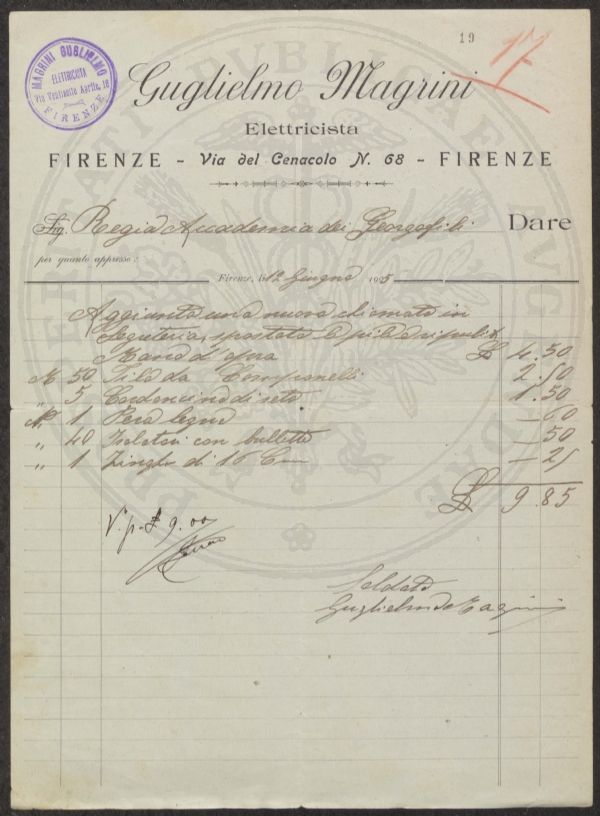 19
17
MAGRINI GUGLIELMO
ELETTRICISTA
Via Ventisette Aprile, 18
FIRENZE
Guglielmo Magrini
Elettricista
FIRENZE - Via del Cenacolo N. 68 - FIRENZE
Sig. Regia Accademia dei Georgofili Dare
per quanto appresso:
Firenze, li 12 Giugno 1905
Aggiunta una nuova chiamata in
Segreteria, spostate le pile e ripulite
Mano d'opera £ 4.50
M 50 Filo da Campanelli 2.50
" 5 Cordoncino di seta 1.50
N. 1 Pera legno — 60
" 40 Isolatori con bullette — 50
" 1 di 16 C — 25
£ 9.85
V. p. £ 9.00
Saldato
Guglielmo Magrini